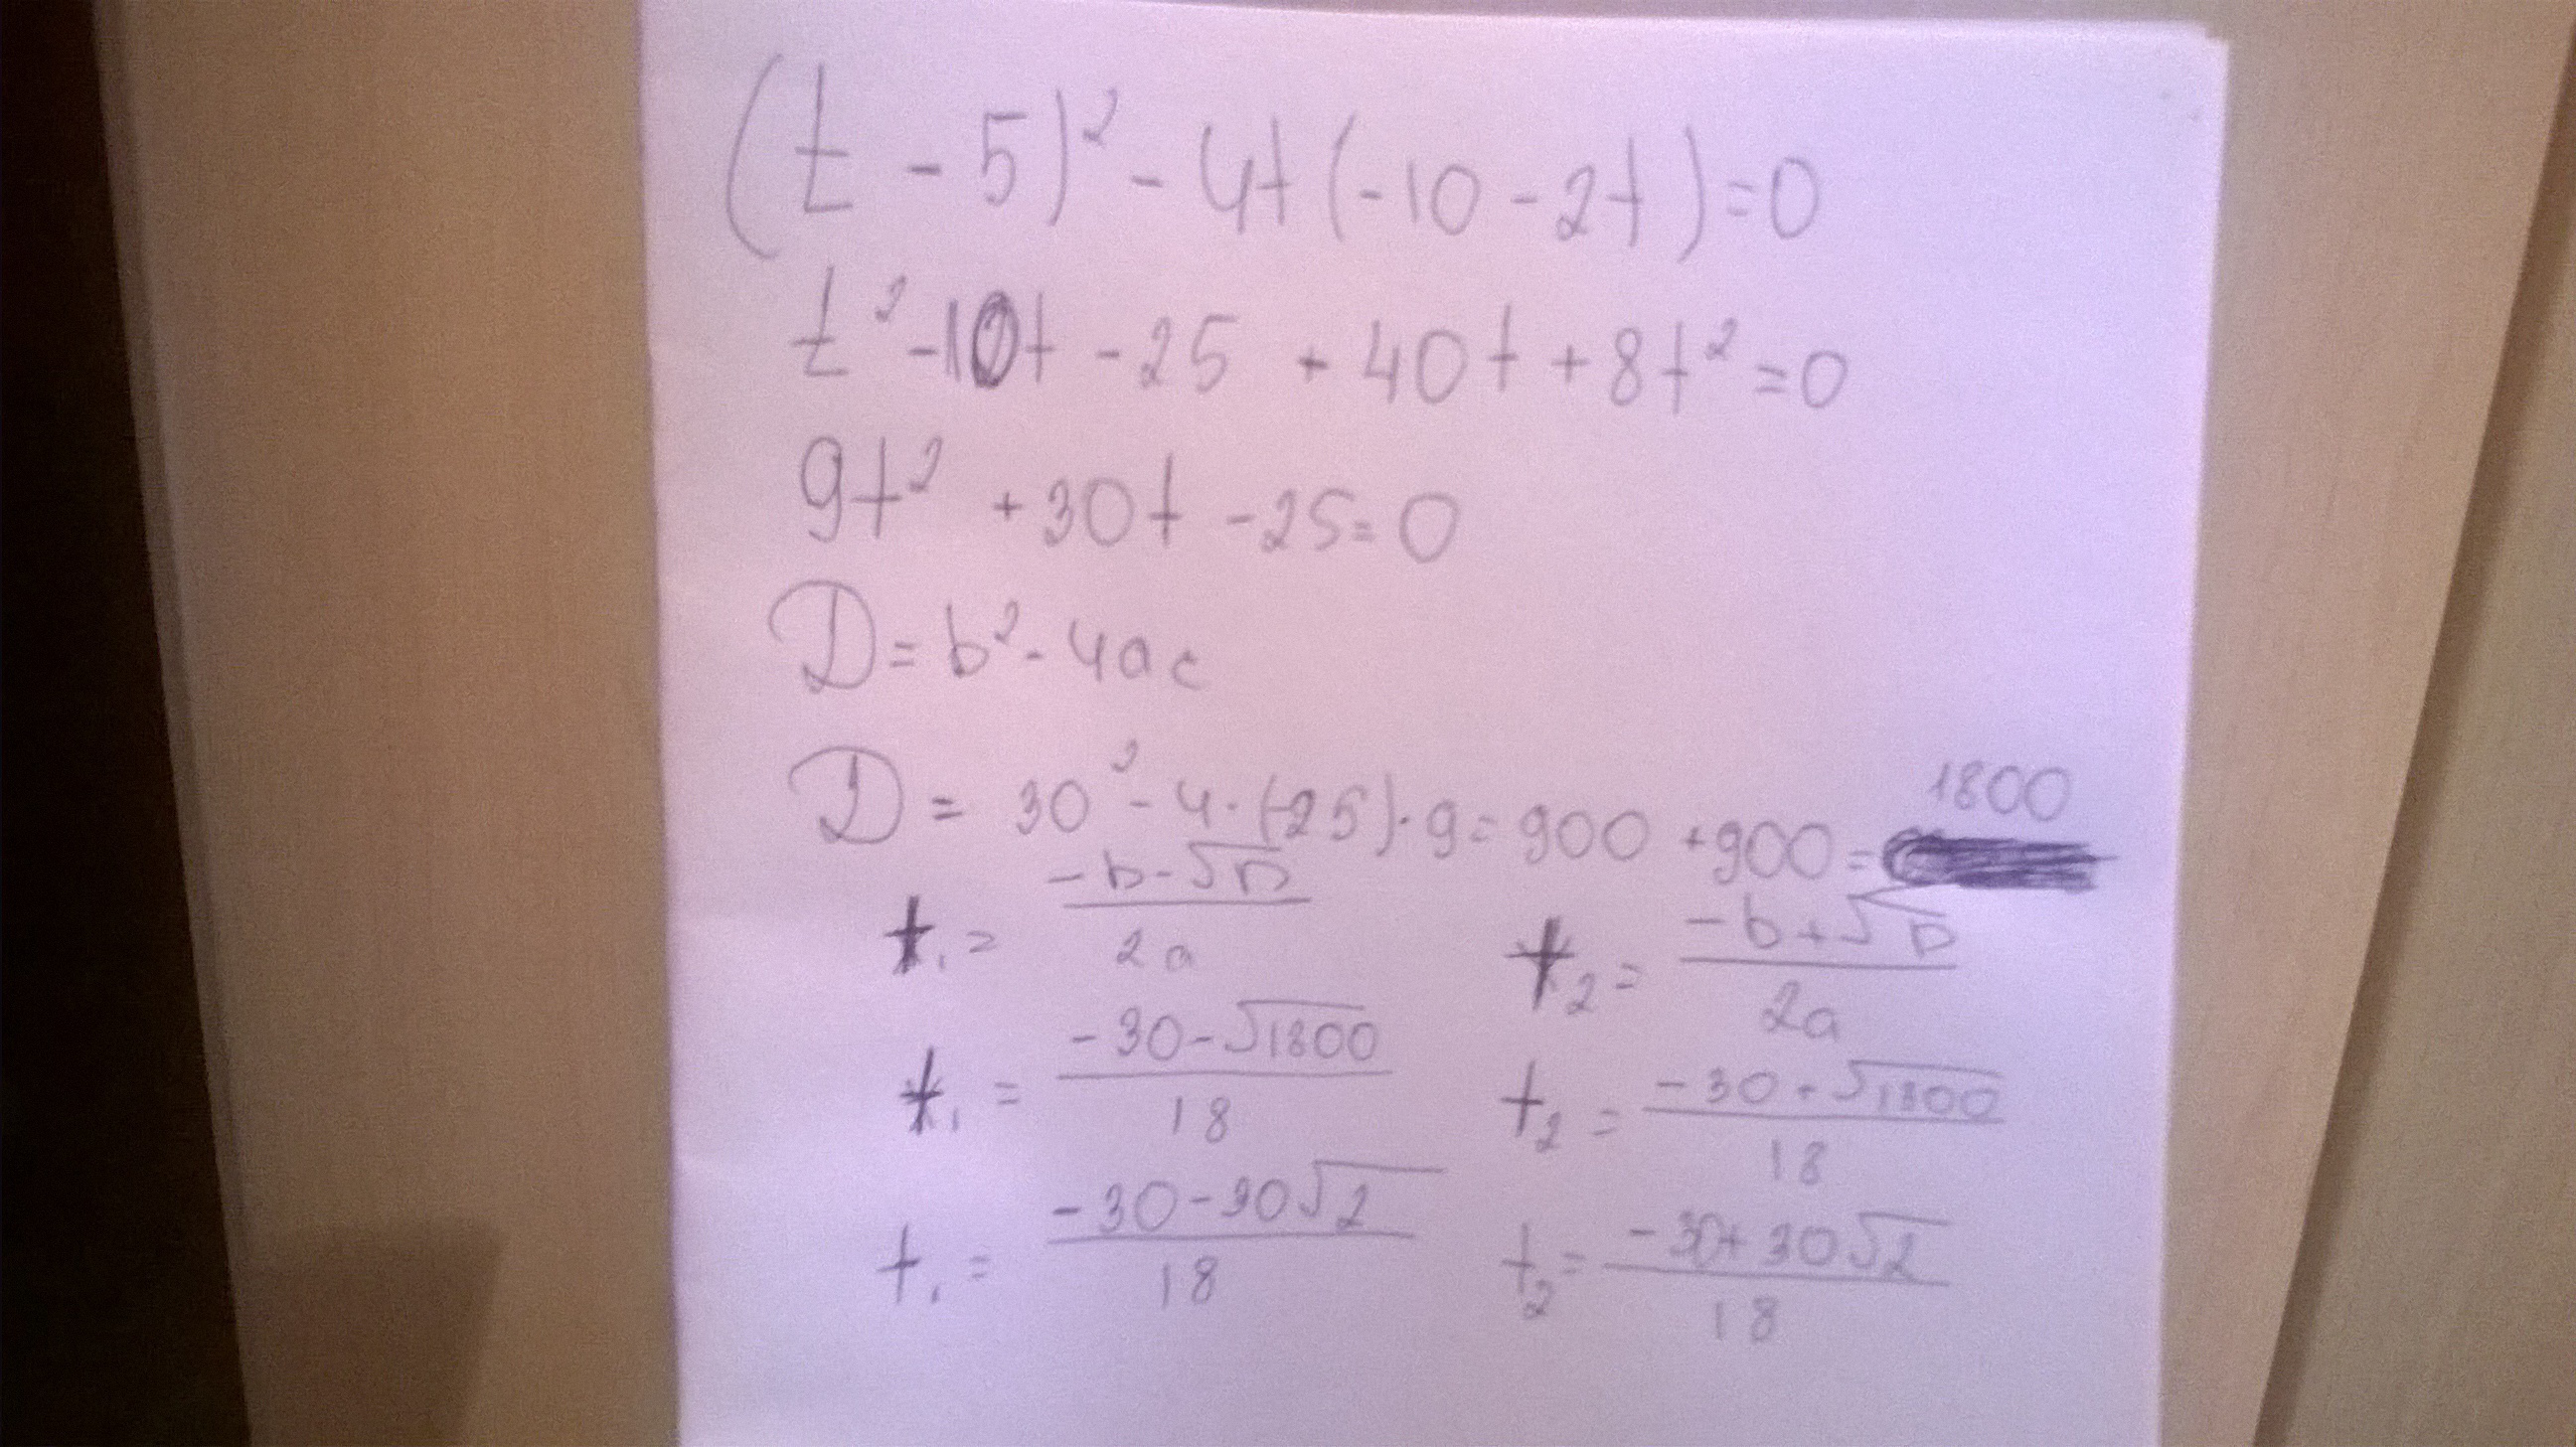 (t - 5)² - 4t(-10 - 2t) = 0
t² - 10t - 25 + 40t + 8t² = 0
9t² + 30t - 25 = 0
D = b² - 4ac
D = 30² - 4·(-25)·9 = 900 + 900 = 1800
t₁ = (-b - √D)/(2a)    t₂ = (-b + √D)/(2a)
t₁ = (-30 - √1800)/18    t₂ = (-30 + √1800)/18
t₁ = (-30 - 30√2)/18    t₂ = (-30 + 30√2)/18